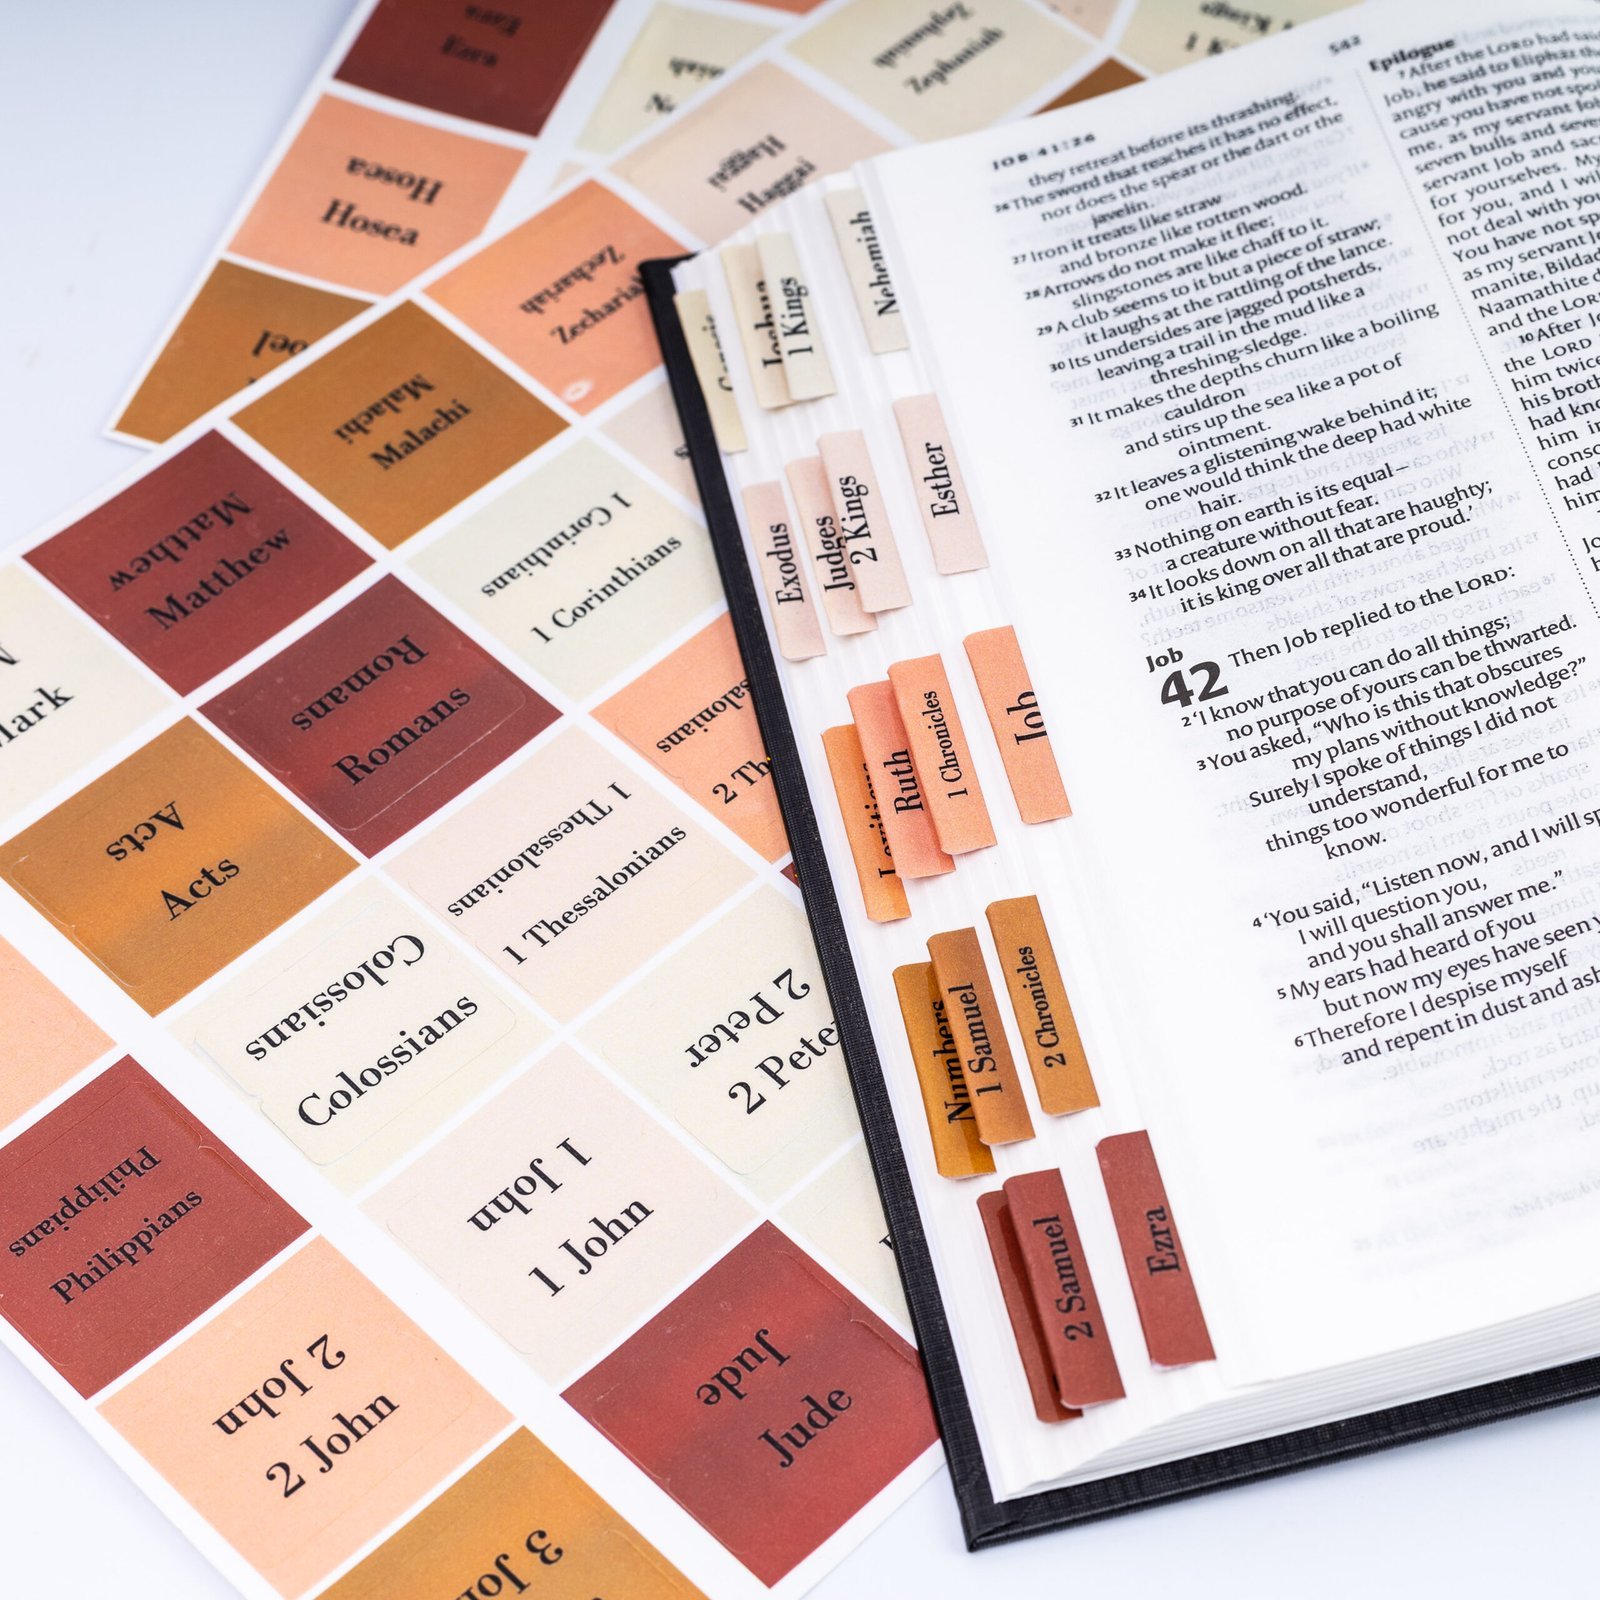 Ezra
Ezra
Hosea
Hosea
Zephaniah
Zephaniah
Haggai
Haggai
Zechariah
Zechariah
Malachi
Malachi
Matthew
Matthew
1 Corinthians
1 Corinthians
Romans
Romans
Acts
Acts
1 Thessalonians
1 Thessalonians
Colossians
Colossians
2 Peter
2 Peter
Philippians
Philippians
1 John
1 John
2 John
2 John
Jude
Jude
Joshua
1 Kings
Nehemiah
Exodus
Judges
2 Kings
Esther
Leviticus
Ruth
1 Chronicles
Job
Numbers
1 Samuel
2 Chronicles
2 Samuel
Ezra
JOB 41:26
they retreat before its thrashing.
26 The sword that reaches it has no effect,
nor does the spear or the dart or the
javelin.
27 Iron it treats like straw
and bronze like rotten wood.
28 Arrows do not make it flee;
slingstones are like chaff to it.
29 A club seems to it but a piece of straw;
it laughs at the rattling of the lance.
30 Its undersides are jagged potsherds,
leaving a trail in the mud like a
threshing-sledge.
31 It makes the depths churn like a boiling
cauldron
and stirs up the sea like a pot of
ointment.
32 It leaves a glistening wake behind it;
one would think the deep had white
hair.
33 Nothing on earth is its equal –
a creature without fear.
34 It looks down on all that are haughty;
it is king over all that are proud.’
Job
42 Then Job replied to the LORD:
2 ‘I know that you can do all things;
no purpose of yours can be thwarted.
3 You asked, “Who is this that obscures
my plans without knowledge?”
Surely I spoke of things I did not
understand,
things too wonderful for me to
know.
4 ‘You said, “Listen now, and I will
I will question you,
and you shall answer me.”
5 My ears had heard of you
but now my eyes have seen
6 Therefore I despise myself
and repent in dust and
542
Epilogue
7 After the LORD had
Job, he said to Eliphaz
angry with you and
cause you have not
me, as my servant
seven bulls and
servant Job and
for yourselves. My
for you, and I
not deal with you
You have not
as my servant
Naamathite
and the
10 After
the LORD
him twice
his
had
him in
had
him